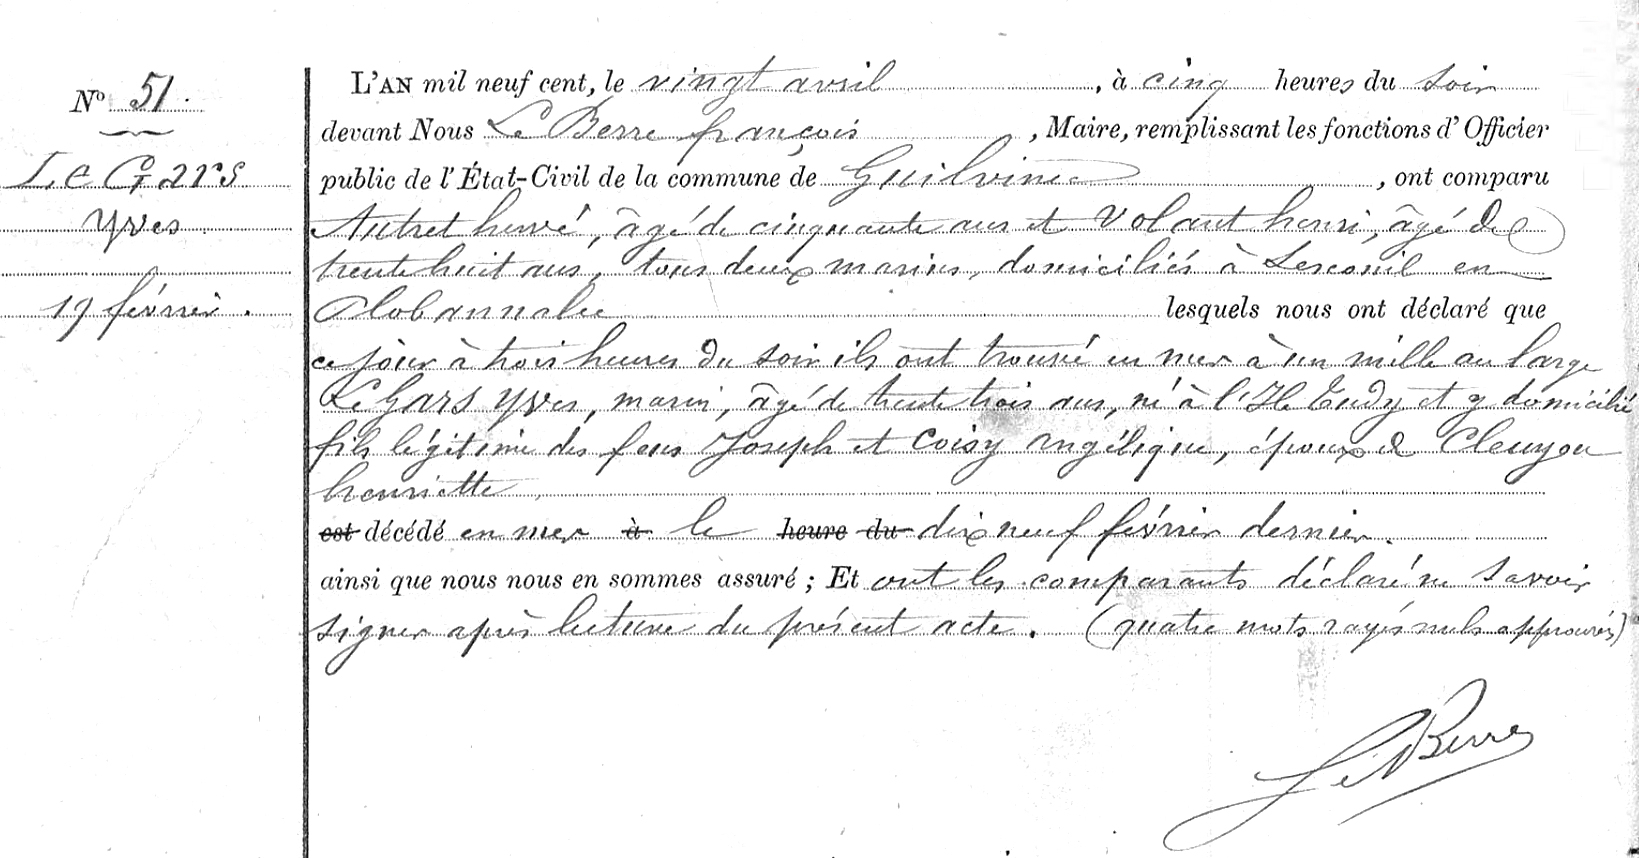 N° 51.
Le Gars
Yves
19 février.
L'AN mil neuf cent, le vingt avril, à cinq heures du soir
devant Nous Le Berre françois, Maire, remplissant les fonctions d'Officier
public de l'État-Civil de la commune de Guilvinec, ont comparu
Autret hervé, âgé de cinquante ans et Volant henri, âgé de
trente huit ans, tous deux marins, domiciliés à Lesconil en
Plobannalec lesquels nous ont déclaré que
ce jour à trois heures du soir ils ont trouvé en mer à un mille au large
Le Gars Yves, marin, âgé de trente trois ans, né à l'Ile Tudy et y domicilié
fils légitime des feus Joseph et Coisy Angélique, époux de Cleuyou
henriette
est décédé en mer à le heure du dix neuf février dernier.
ainsi que nous nous en sommes assuré ; Et ont les comparants déclaré ne savoir
signer après lecture du présent acte. (quatre mots rayés nuls approuvés)
Le Berre